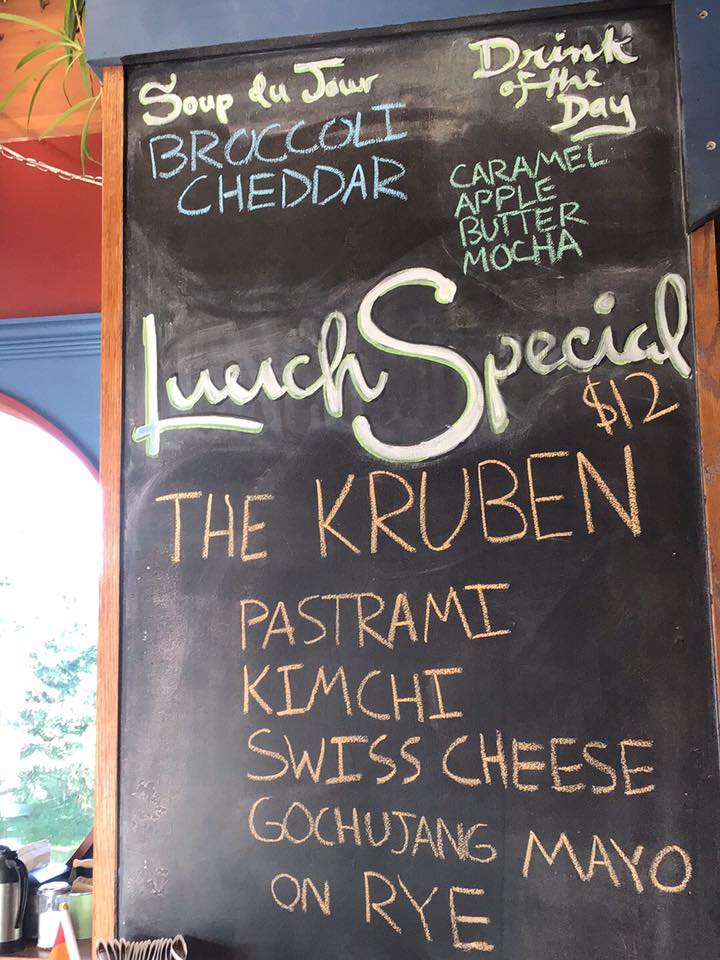 Soup du Jour
BROCCOLI
CHEDDAR
Drink
of the
Day
CARAMEL
APPLE
BUTTER
MOCHA
Lunch Special
$12
THE KRUBEN
PASTRAMI
KIMCHI
SWISS CHEESE
GOCHUJANG MAYO
ON RYE